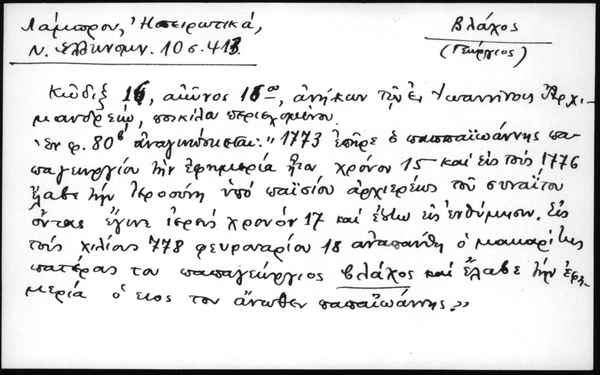 Λάμπρου, Ἠπειρωτικά,
Ν. Ἑλληνομν. 10 σ. 413.
Βλάχος
(Γεώργιος)
Κῶδιξ 16, αἰῶνος 18ου, ἀνήκων τῷ ἐν Ἰωαννίνοις Ἀρχι-
μανδρείῳ, ποικίλα περιεχομένου.
Ἐν φ. 80β ἀναγινώσκεται: "1773 ἐπῆρε ὁ παππαϊωάννης πα-
παγεωργίου τὴν ἐφημερία ἦτα χρόνον 15 καὶ εἰς τοὺς 1776
ἔλαβε τὴν ἱεροσύνη ὑπὸ παϊσίου ἀρχιερέως τοῦ συναίτου
ὄντας ἔγινε ἱερεὺς χρονόν 17 καὶ ἔστω εἰς ἐνθύμησιν. Εἰς
τοὺς χιλίους 778 φευρουαρίου 18 ἀναπαύθη ὁ μακαρίτης
πατέρας του παπαγεώργιος βλάχος καὶ ἔλαβε τὴν ἐφη-
μερία ὁ ειος του ἄνωθεν παπαϊωάννης."